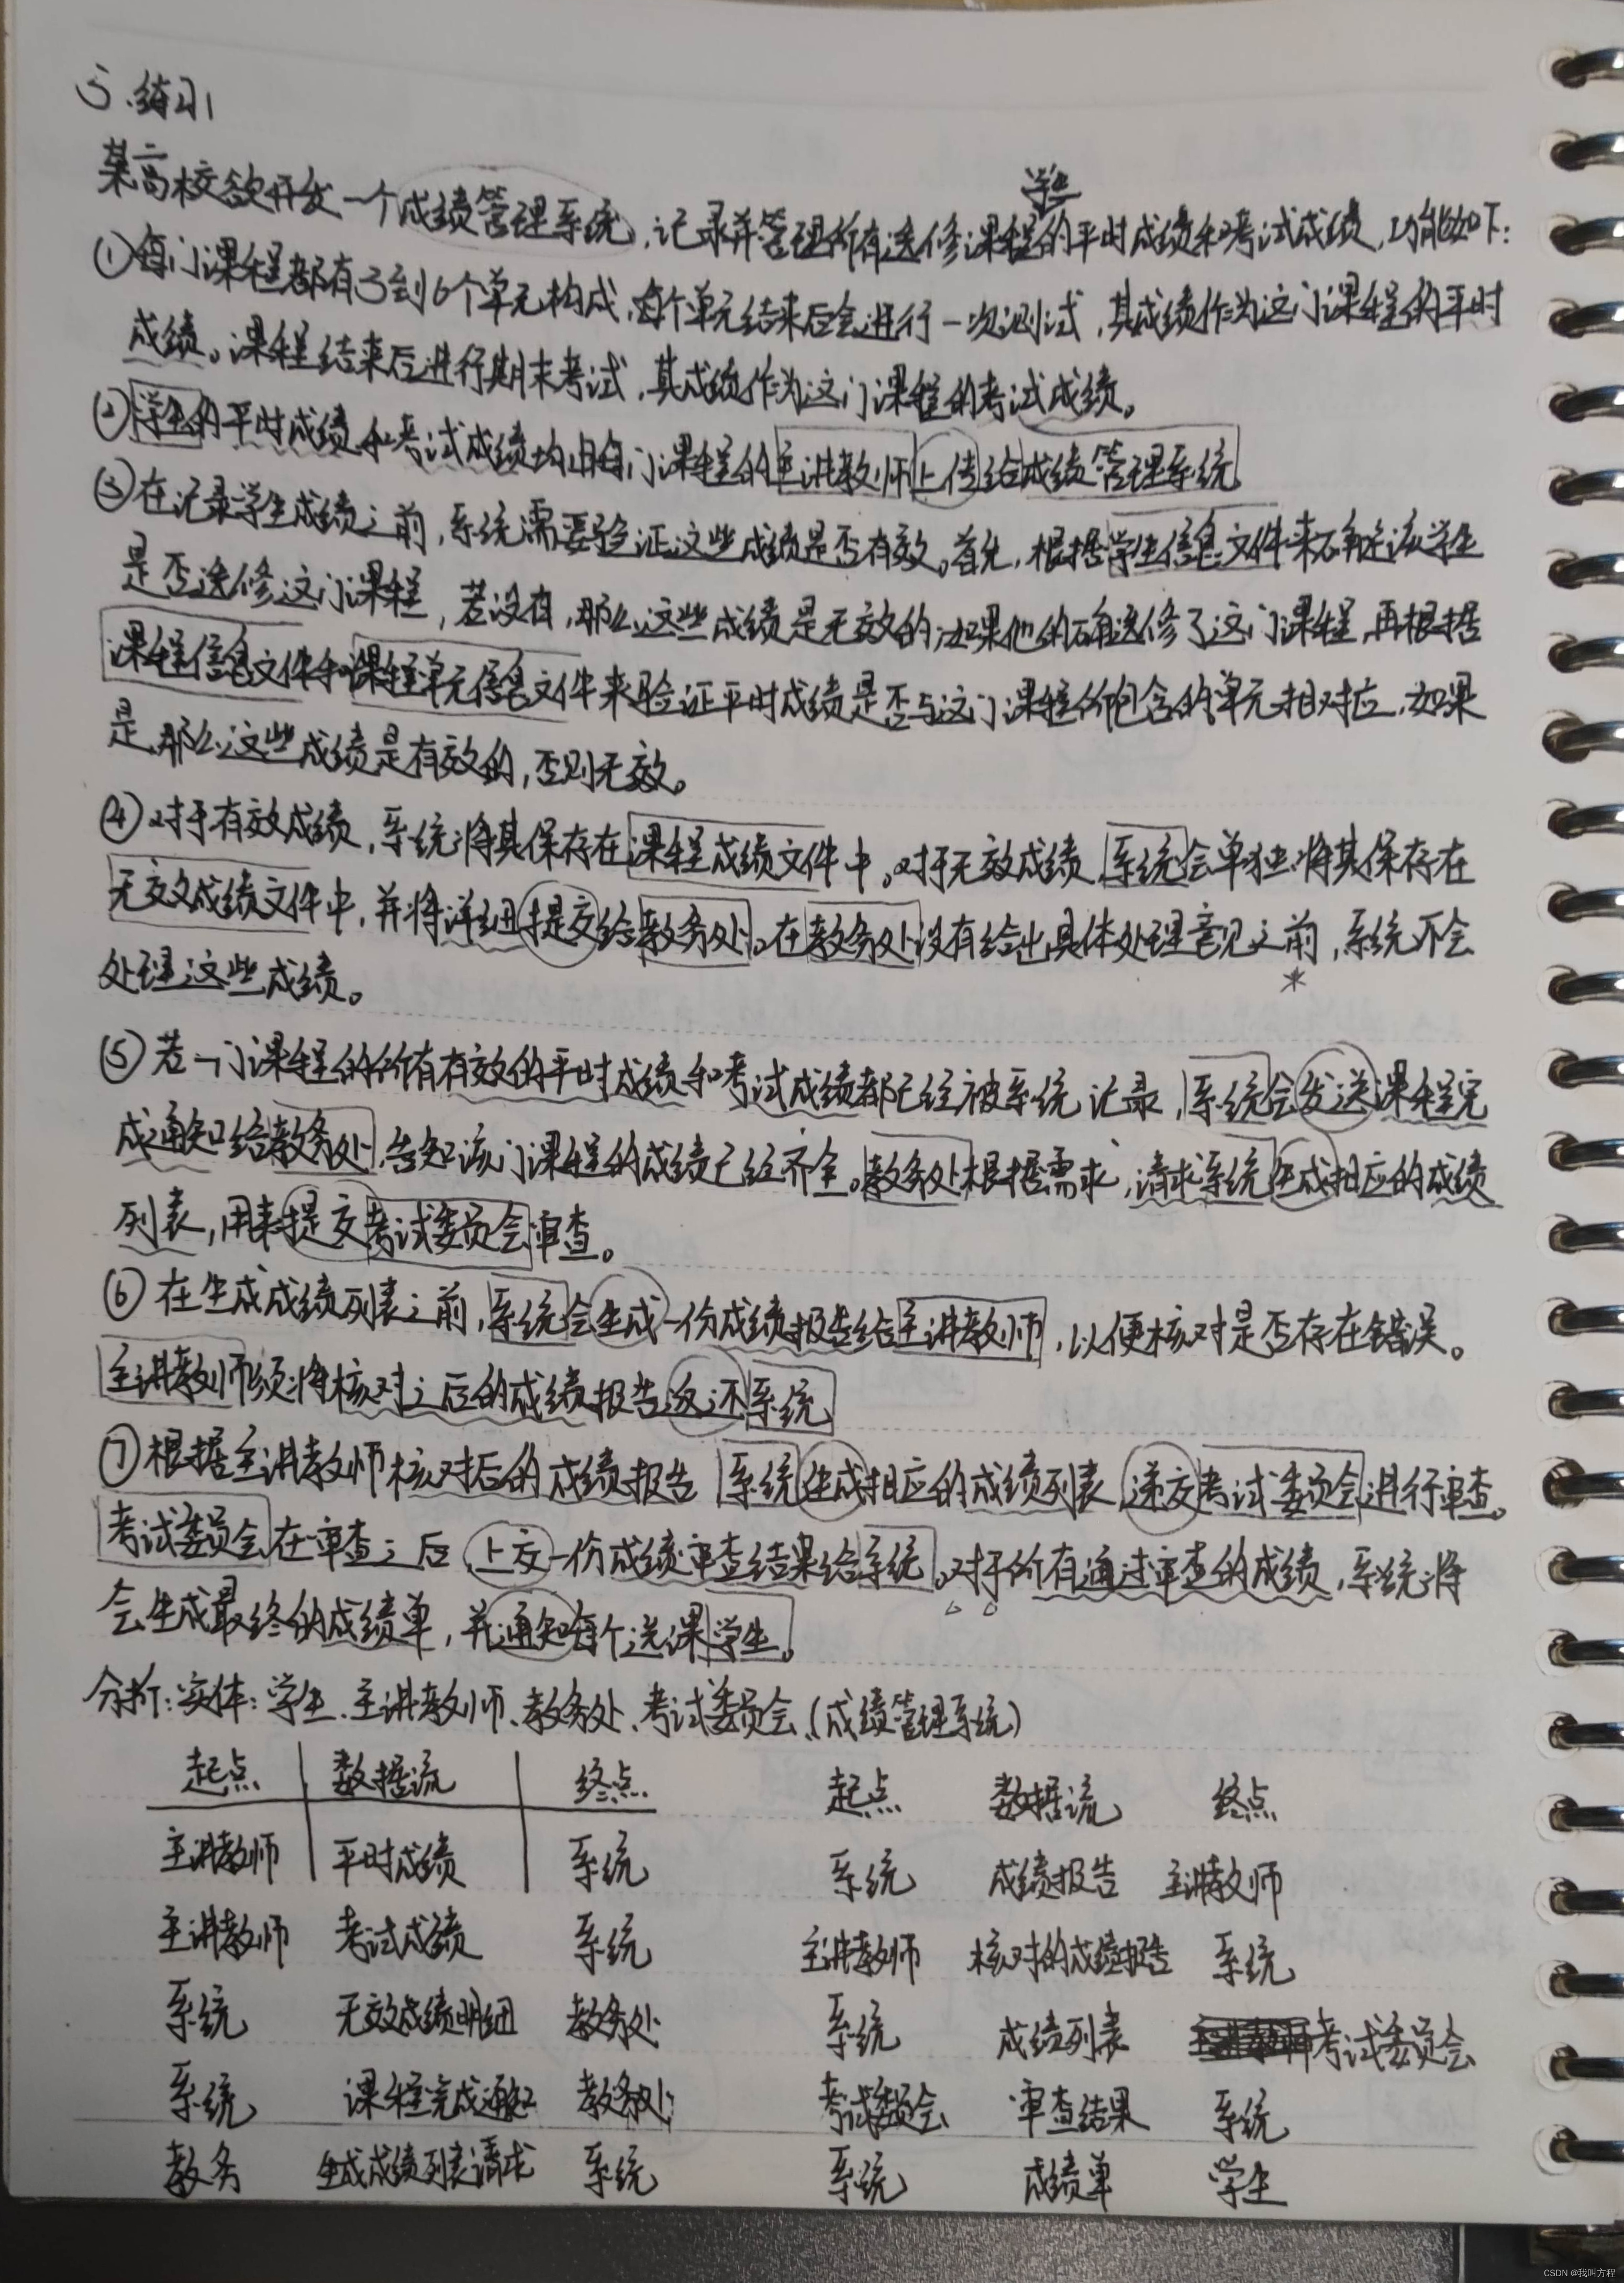 5.练习1
某高校欲开发一个成绩管理系统,记录并管理所有选修课程的学生平时成绩和考试成绩,功能如下:
①每门课程都有3到6个单元构成,每个单元结束后会进行一次测试,其成绩作为这门课程的平时
成绩。课程结束后进行期末考试,其成绩作为这门课程的考试成绩。
②学生的平时成绩和考试成绩均由每门课程的主讲教师上传给成绩管理系统
③在记录学生成绩之前,系统需要验证这些成绩是否有效。首先,根据学生信息文件来确定该学生
是否选修这门课程,若没有,那么这些成绩是无效的;如果他的确选修了这门课程,再根据
课程信息文件和课程单元信息文件来验证平时成绩是否与这门课程所包含的单元相对应,如果
是,那么这些成绩是有效的,否则无效。
④对于有效成绩,系统将其保存在课程成绩文件中。对于无效成绩,系统会单独将其保存在
无效成绩文件中,并将详细提交给教务处。在教务处没有给出具体处理意见之前,系统不会
处理这些成绩。
⑤若一门课程的所有有效的平时成绩和考试成绩都已经被系统记录,系统会发送课程完
成通知给教务处,告知该门课程的成绩已经齐全。教务处根据需求,请求系统生成相应的成绩
列表,用来提交考试委员会审查。
⑥在生成成绩列表之前,系统会生成一份成绩报告给主讲教师,以便核对是否存在错误。
主讲教师须将核对之后的成绩报告返还系统
⑦根据主讲教师核对后的成绩报告 系统生成相应的成绩列表,递交考试委员会进行审查。
考试委员会在审查之后,上交一份成绩审查结果给系统。对于所有通过审查的成绩,系统将
会生成最终的成绩单,并通知每个选课学生。
分析:实体:学生、主讲教师、教务处、考试委员会、(成绩管理系统)
起点 数据流 终点 起点 数据流 终点
主讲教师 平时成绩 系统 系统 成绩报告 主讲教师
主讲教师 考试成绩 系统 主讲教师 核对的成绩报告 系统
系统 无效成绩明细 教务处 系统 成绩列表 考试委员会
系统 课程完成通知 教务处 考试委员会 审查结果 系统
教务 生成成绩列表请求 系统 系统 成绩单 学生
CSDN @我叫方程